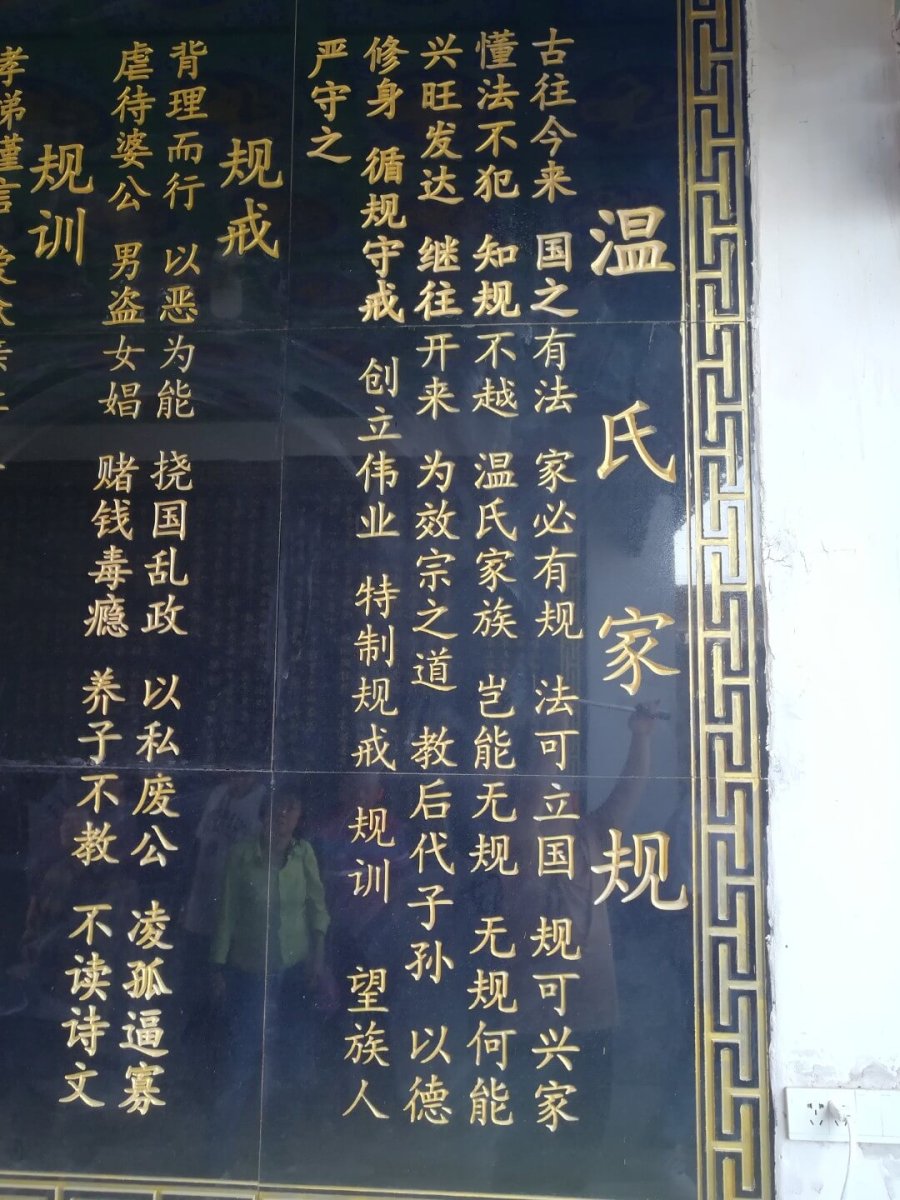 温氏家规
古往今来 国之有法 家必有规 法可立国 规可兴家
懂法不犯 知规不越 温氏家族 岂能无规 无规何能
兴旺发达 继往开来 为效宗之道 教后代子孙 以德
修身 循规守戒 创立伟业 特制规戒 规训 望族人
严守之
规戒
背理而行 以恶为能 挠国乱政 以私废公 凌孤逼寡
虐待婆公 男盗女娼 赌钱毒瘾 养子不教 不读诗文
规训
孝悌谨言